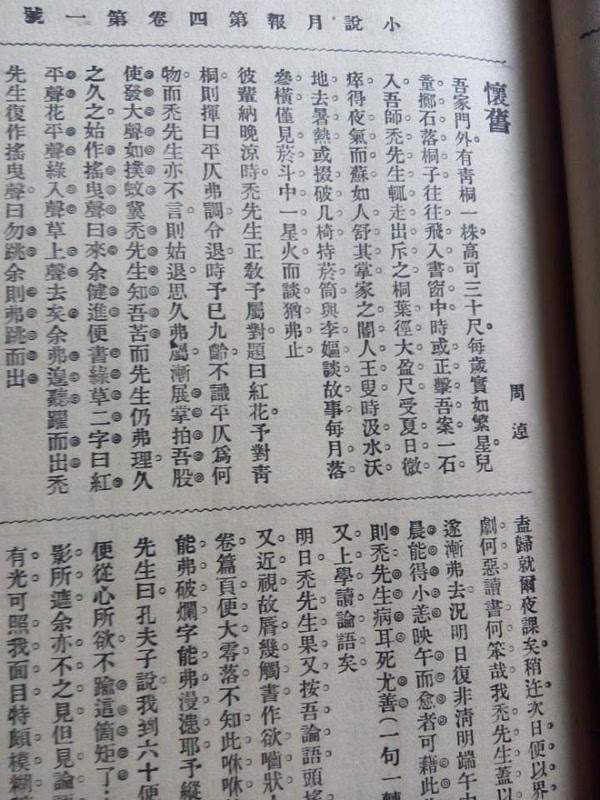 小說月報第四卷第一號
懷舊
周逴
吾家門外有靑桐一株高可三十尺每歲實如繁星兒
童擲石落桐子往往飛入書窗中時或正擊吾案一石
入吾師禿先生輒走出斥之桐葉徑大盈尺受夏日微
瘁得夜氣而蘇如人舒其掌家之閽人王叟時汲水沃
地去暑熱或掇破几椅持菸筒與李嫗談故事每月落
參橫僅見菸斗中一星火而談猶弗止
彼輩納晚涼時禿先生正敎予屬對題曰紅花予對靑
桐則揮曰平仄弗調令退時予已九齡不識平仄爲何
物而禿先生亦不言則姑退思久弗屬漸展掌拍吾股
使發大聲如撲蚊冀禿先生知吾苦而先生仍弗理久
之久之始作搖曳聲曰來余健進便書綠草二字曰紅
平聲花平聲綠入聲草上聲去矣余弗遑聽躍而出禿
先生復作搖曳聲曰勿跳余則弗跳而出
盍歸就爾夜課矣稍迕次日便以界
劇何惡讀書何笨哉我禿先生蓋以
遂漸弗去況明日復非淸明端午中
晨能得小恙映午而愈者可藉此
則禿先生病耳死尤善(一句一轉
又上學讀論語矣
明日禿先生果又按吾論語頭搖
又近視故唇幾觸書作欲嚙狀人
卷篇頁便大零落不知此咻咻
能弗破爛字能弗漫漶耶予縱
先生曰孔夫子說我到六十便
便從心所欲不踰這箇矩了
影所遮余亦不之見但見論語
有光可照我面目特頗模糊